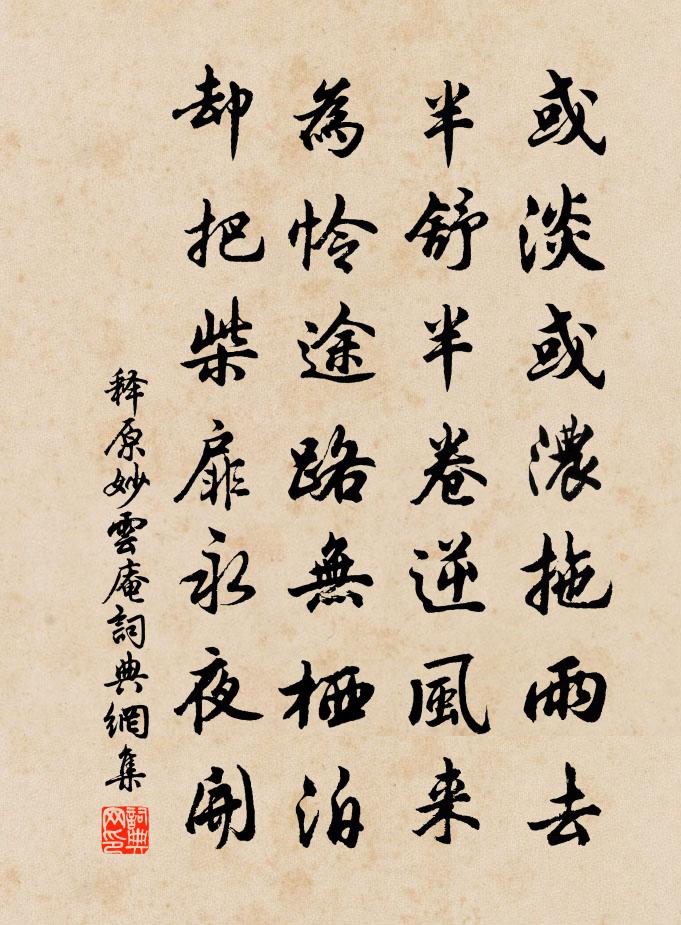 或淡或濃拖雨去
半舒半卷逆風来
為怜途路無栖泊
却把柴扉永夜開
释原妙雲庵詞典網集
詞典网印